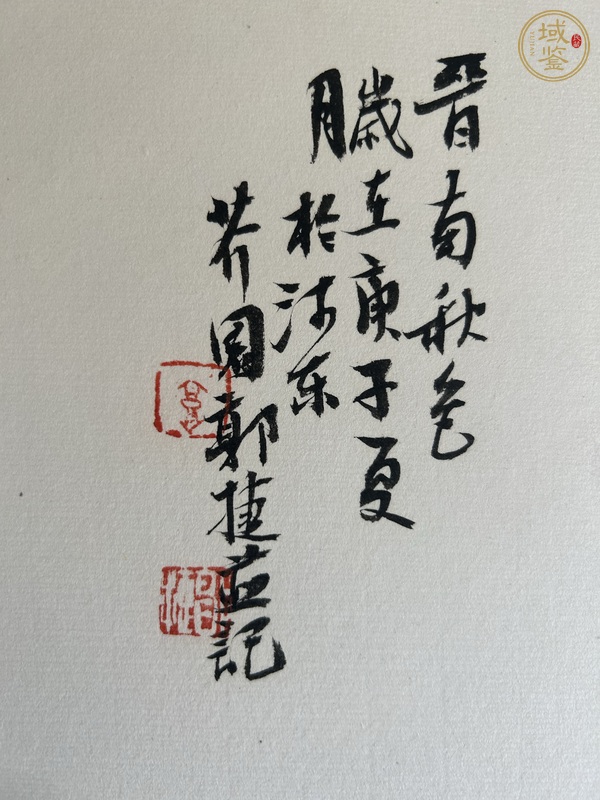 晋南秋色
歲在庚子夏
月於河东
芥園郭捷並記
域鉴